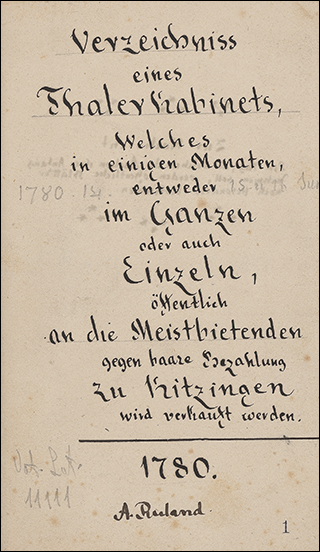 Verzeichniss
eines
Thaler Kabinets,
Welches
in einigen Monaten,
entweder
1780
im Ganzen
oder auch
Einzeln,
öffentlich
an die Meistbietenden
gegen baare Bezahlung
zu Kitzingen
wird verkauft werden.
1780.
Vat. Lat.
11111
A. Ruland.
1